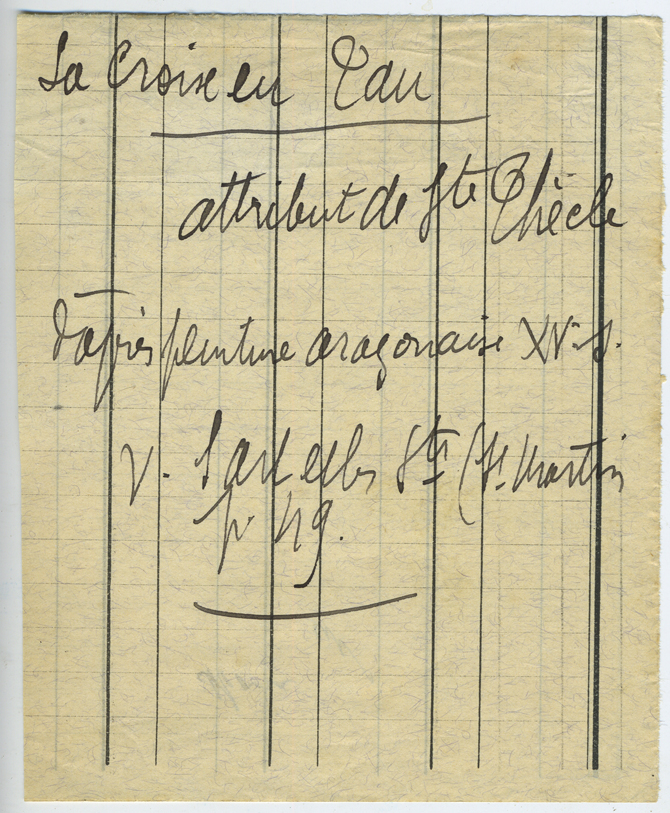 La Croix en Tau
attribut de Ste Thècle
d'après peinture aragonaise XVe s.
V. des Sts (St. Martin
p. 49.